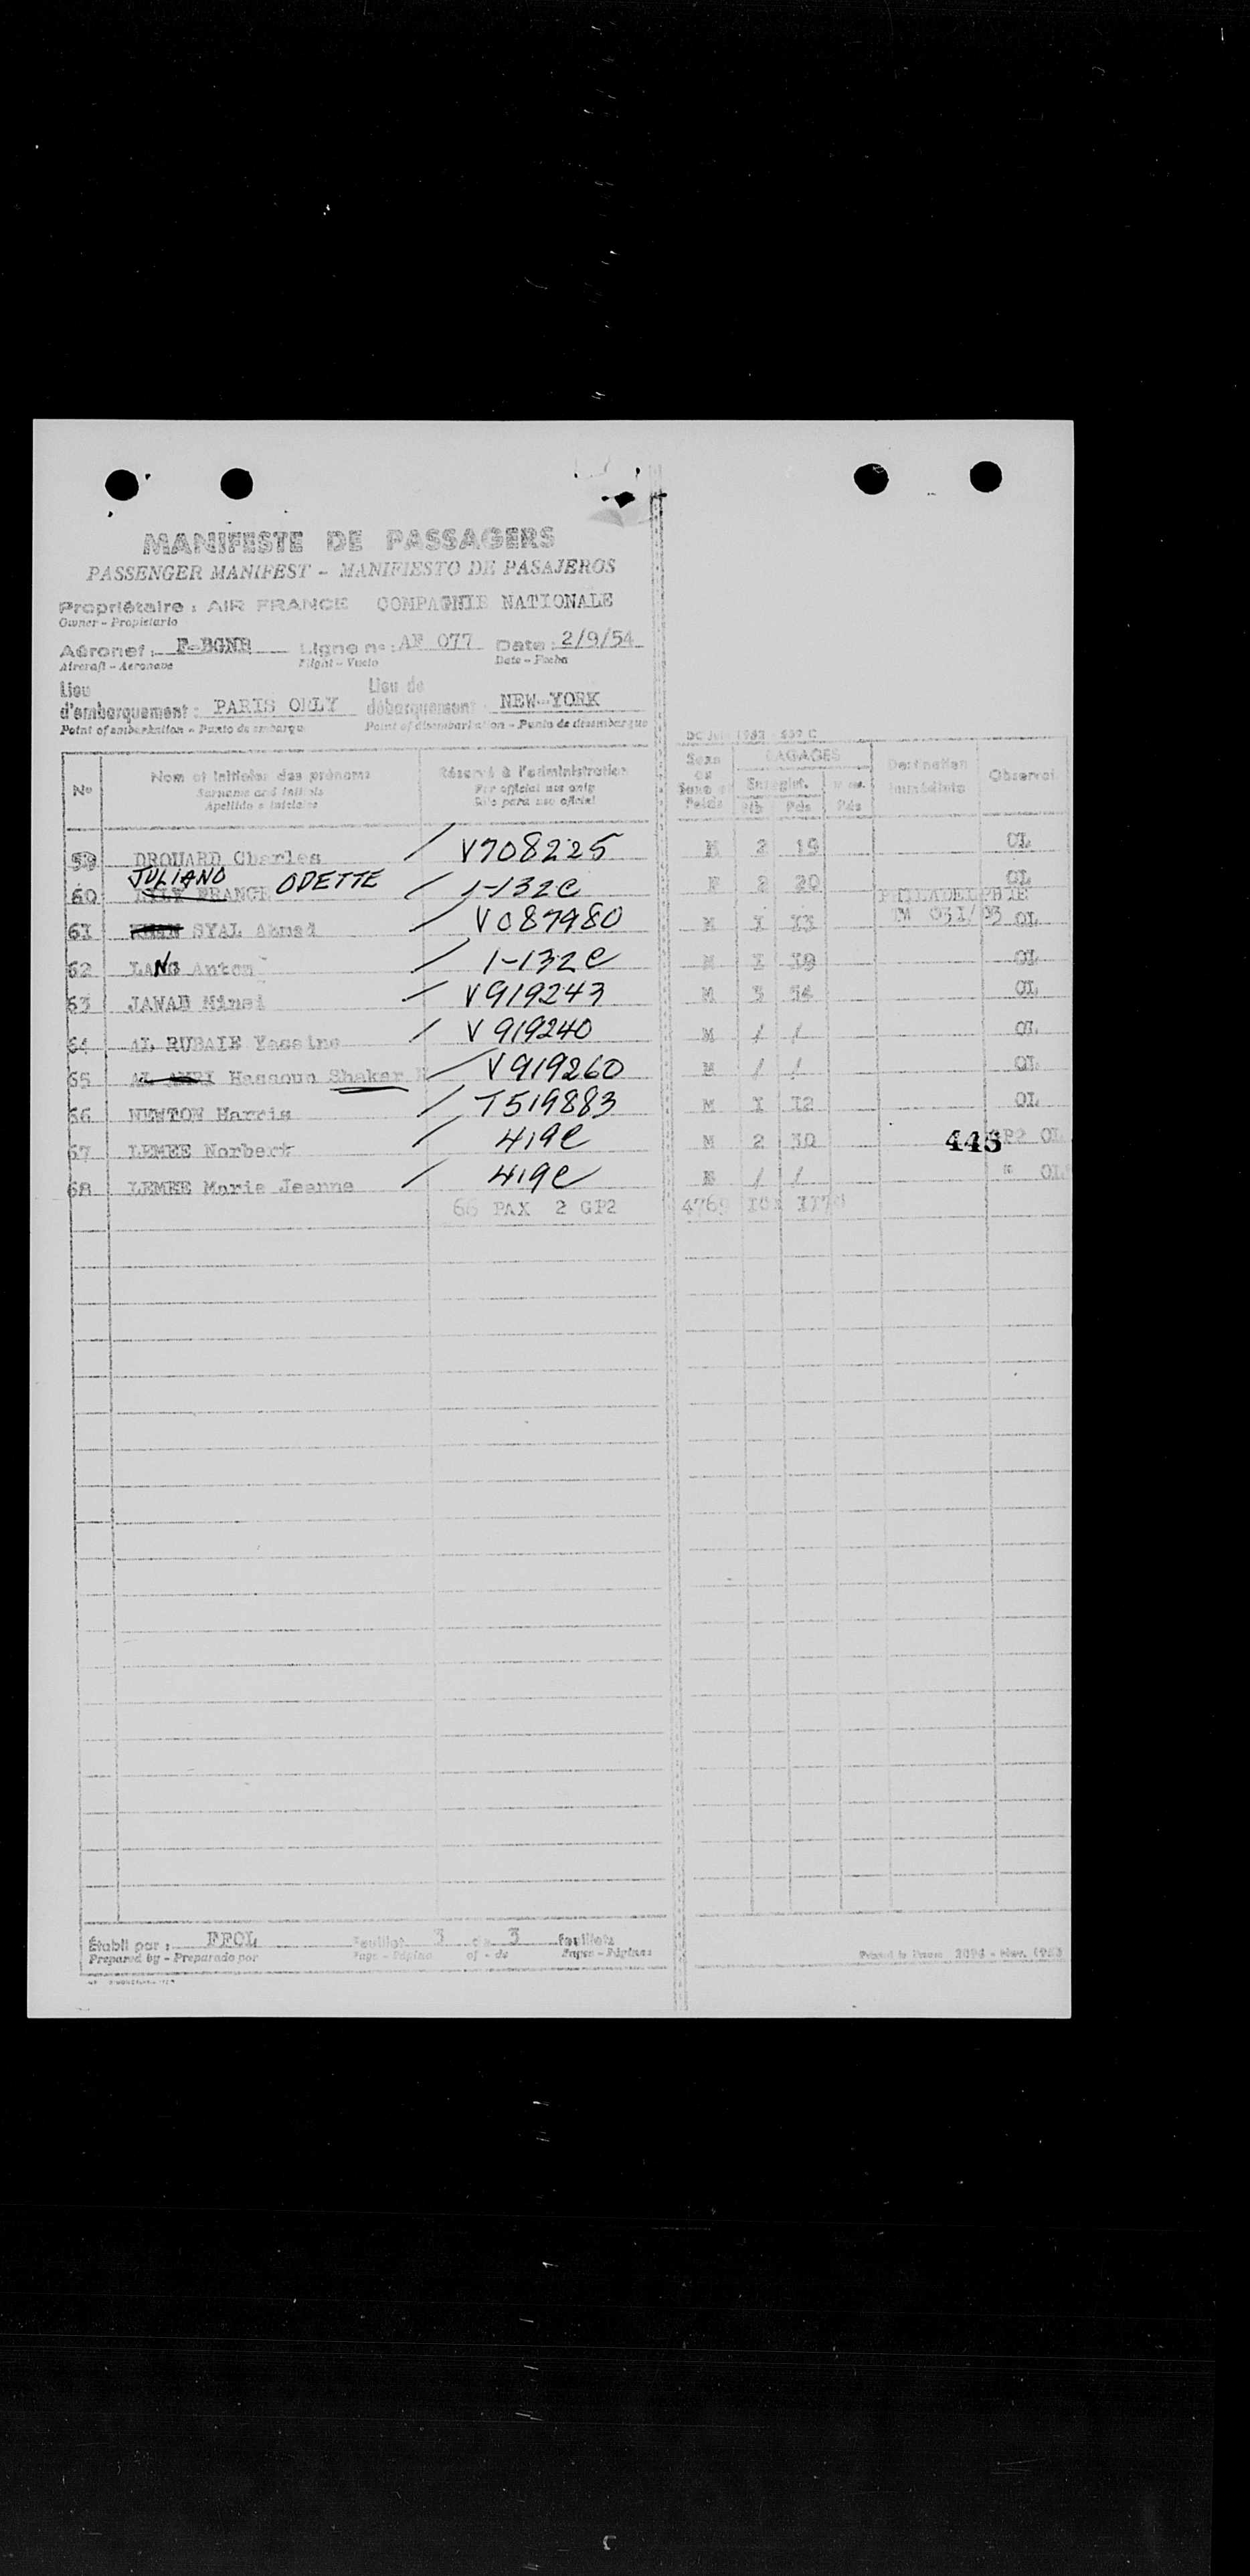 MANIFESTE DE PASSAGERS
PASSENGER MANIFEST - MANIFIESTO DE PASAJEROS
Propriétaire : AIR FRANCE COMPAGNIE NATIONALE
Owner - Propietario
Aéronef : F-BGNB Ligne n° : AF 077 Date : 2/9/54
Aircraft - Aeronave Flight - Vuelo Date - Fecha
Lieu d'embarquement : PARIS ORLY Lieu de débarquement : NEW-YORK
Point of embarkation - Punto de embarque Point of disembarkation - Punto de desembarque
N° Nom et initiales des prénoms Réservé à l'administration Sexe BAGAGES Destination immédiate Observat.
Surname and initials For official use only Enregist.
Apellido e iniciales Sólo para uso oficial Pds Pds
59 DROUARD Charles / V708225 M 2 19 OL
60 JULIANO ODETTE / 1-132e F 2 20 OL
PHILADELPHIE
61 SYAL Ahmad / V087980 M I I3 TW 031/03 OL
62 LANG Anton / 1-132e M I I9 OL
63 JAWAD Minsi / V919243 M 3 54 OL
64 AL RUBAIE Yassine / V919240 M / / OL
65 Hassoun Shaker / V919260 M / / OL
66 NEWTON Harris / T519883 M I I2 OL
67 LEMEE Norbert / 419e M 2 30 GP2 OL
448
68 LEMEE Marie Jeanne / 419e F / / " OL
66 PAX 2 GP2 4769 II7
Établi par : FFOL Feuillet 3 de 3 feuillets
Prepared by - Preparado por Page - Página of - de Pages - Páginas